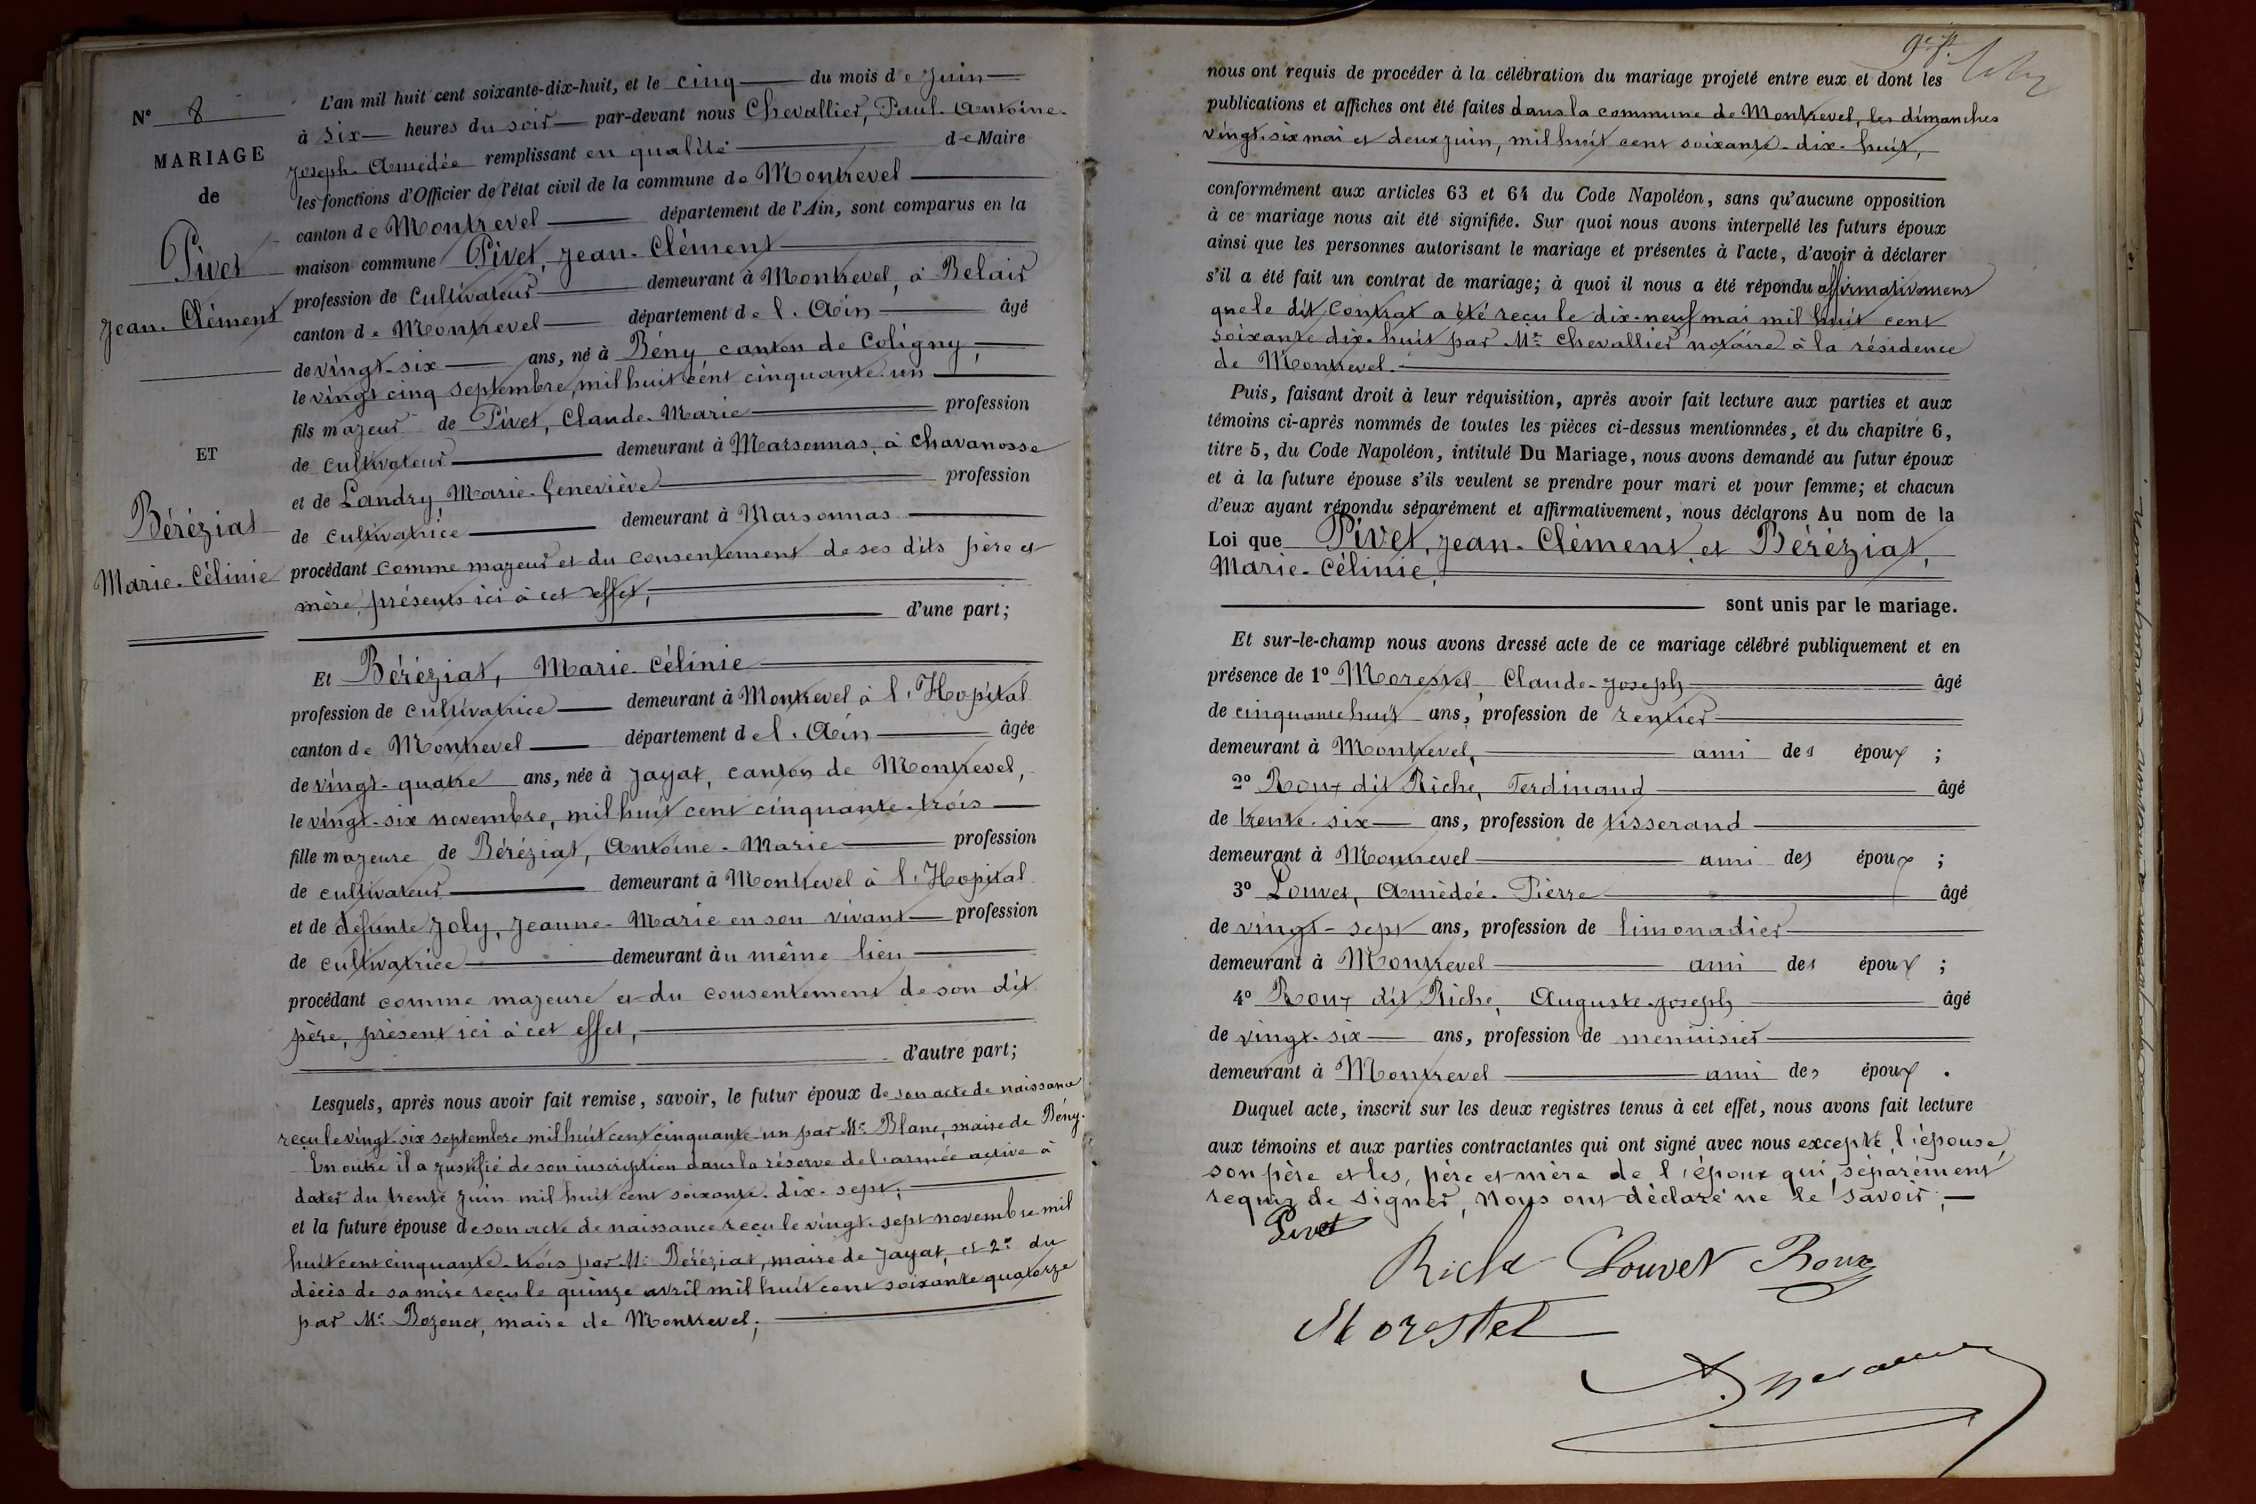 N° 8
MARIAGE
de
Pivet
Jean-Clément
ET
Béréziat
Marie-Célinie
L'an mil huit cent soixante-dix-huit, et le cinq du mois de Juin
à six heures du soir par-devant nous Chevallier, Paul-Antoine-
Joseph-Amédée remplissant en qualité de Maire
les fonctions d'Officier de l'état civil de la commune de Montrevel
canton de Montrevel département de l'Ain, sont comparus en la
maison commune Pivet, Jean-Clément
profession de Cultivateur demeurant à Montrevel, à Belair
canton de Montrevel département de l'Ain âgé
de vingt-six ans, né à Bény, canton de Coligny,
le vingt cinq septembre, mil huit cent cinquante-un
fils majeur de Pivet, Claude-Marie profession
de cultivateur demeurant à Marsonnas, à Chavanosse
et de Landry, Marie-Geneviève profession
de cultivatrice demeurant à Marsonnas
procédant comme majeur et du consentement de ses dits père et
mère, présents ici à cet effet,
d'une part;
Et Béréziat, Marie-Célinie
profession de cultivatrice demeurant à Montrevel à l'Hopital
canton de Montrevel département de l'Ain âgée
de vingt-quatre ans, née à Jayat, canton de Montrevel,
le vingt-six novembre, mil huit cent cinquante-trois
fille majeure de Béréziat, Antoine-Marie profession
de cultivateur demeurant à Montrevel à l'Hopital
et de défunte Joly, Jeanne-Marie en son vivant profession
de cultivatrice demeurant au même lieu
procédant comme majeure et du consentement de son dit
père, présent ici à cet effet,
d'autre part;
Lesquels, après nous avoir fait remise, savoir, le futur époux de son acte de naissance
reçu le vingt-six septembre mil huit cent cinquante-un par Mr Blanc, maire de Bény.
En outre il a justifié de son inscription dans la réserve de l'armée active à
dater du trente juin mil huit cent soixante-dix-sept;
et la future épouse de son acte de naissance reçu le vingt-sept novembre mil
huit cent cinquante-trois par Mr Béréziat, maire de Jayat, et 2° du
décès de sa mère reçu le quinze avril mil huit cent soixante quatorze
par Mr Bozonet, maire de Montrevel;
nous ont requis de procéder à la célébration du mariage projeté entre eux et dont les
publications et affiches ont été faites dans la commune de Montrevel, les dimanches
vingt-six mai et deux juin, mil huit cent soixante-dix-huit,
conformément aux articles 63 et 64 du Code Napoléon, sans qu'aucune opposition
à ce mariage nous ait été signifiée. Sur quoi nous avons interpellé les futurs époux
ainsi que les personnes autorisant le mariage et présentes à l'acte, d'avoir à déclarer
s'il a été fait un contrat de mariage; à quoi il nous a été répondu affirmativement
que le dit Contrat a été reçu le dix-neuf mai mil huit cent
soixante dix-huit par Me Chevallier notaire à la résidence
de Montrevel.
Puis, faisant droit à leur réquisition, après avoir fait lecture aux parties et aux
témoins ci-après nommés de toutes les pièces ci-dessus mentionnées, et du chapitre 6,
titre 5, du Code Napoléon, intitulé Du Mariage, nous avons demandé au futur époux
et à la future épouse s'ils veulent se prendre pour mari et pour femme; et chacun
d'eux ayant répondu séparément et affirmativement, nous déclarons Au nom de la
Loi que Pivet, Jean-Clément et Béréziat,
Marie-Célinie,
sont unis par le mariage.
Et sur-le-champ nous avons dressé acte de ce mariage célébré publiquement et en
présence de 1° Morestel, Claude-Joseph âgé
de cinquante huit ans, profession de rentier
demeurant à Montrevel, ami des époux ;
2° Roux dit Riche, Ferdinand âgé
de trente-six ans, profession de tisserand
demeurant à Montrevel ami des époux ;
3° Louvet, Amédée-Pierre âgé
de vingt-sept ans, profession de limonadier
demeurant à Montrevel ami des époux ;
4° Roux dit Riche, Auguste-Joseph âgé
de vingt-six ans, profession de menuisier
demeurant à Montrevel ami des époux .
Duquel acte, inscrit sur les deux registres tenus à cet effet, nous avons fait lecture
aux témoins et aux parties contractantes qui ont signé avec nous excepté l'épouse
son père et les père et mère de l'époux qui, séparément
requis de signer, nous ont déclaré ne le savoir,
Pivet
Riche Louvet Roux
Morestel